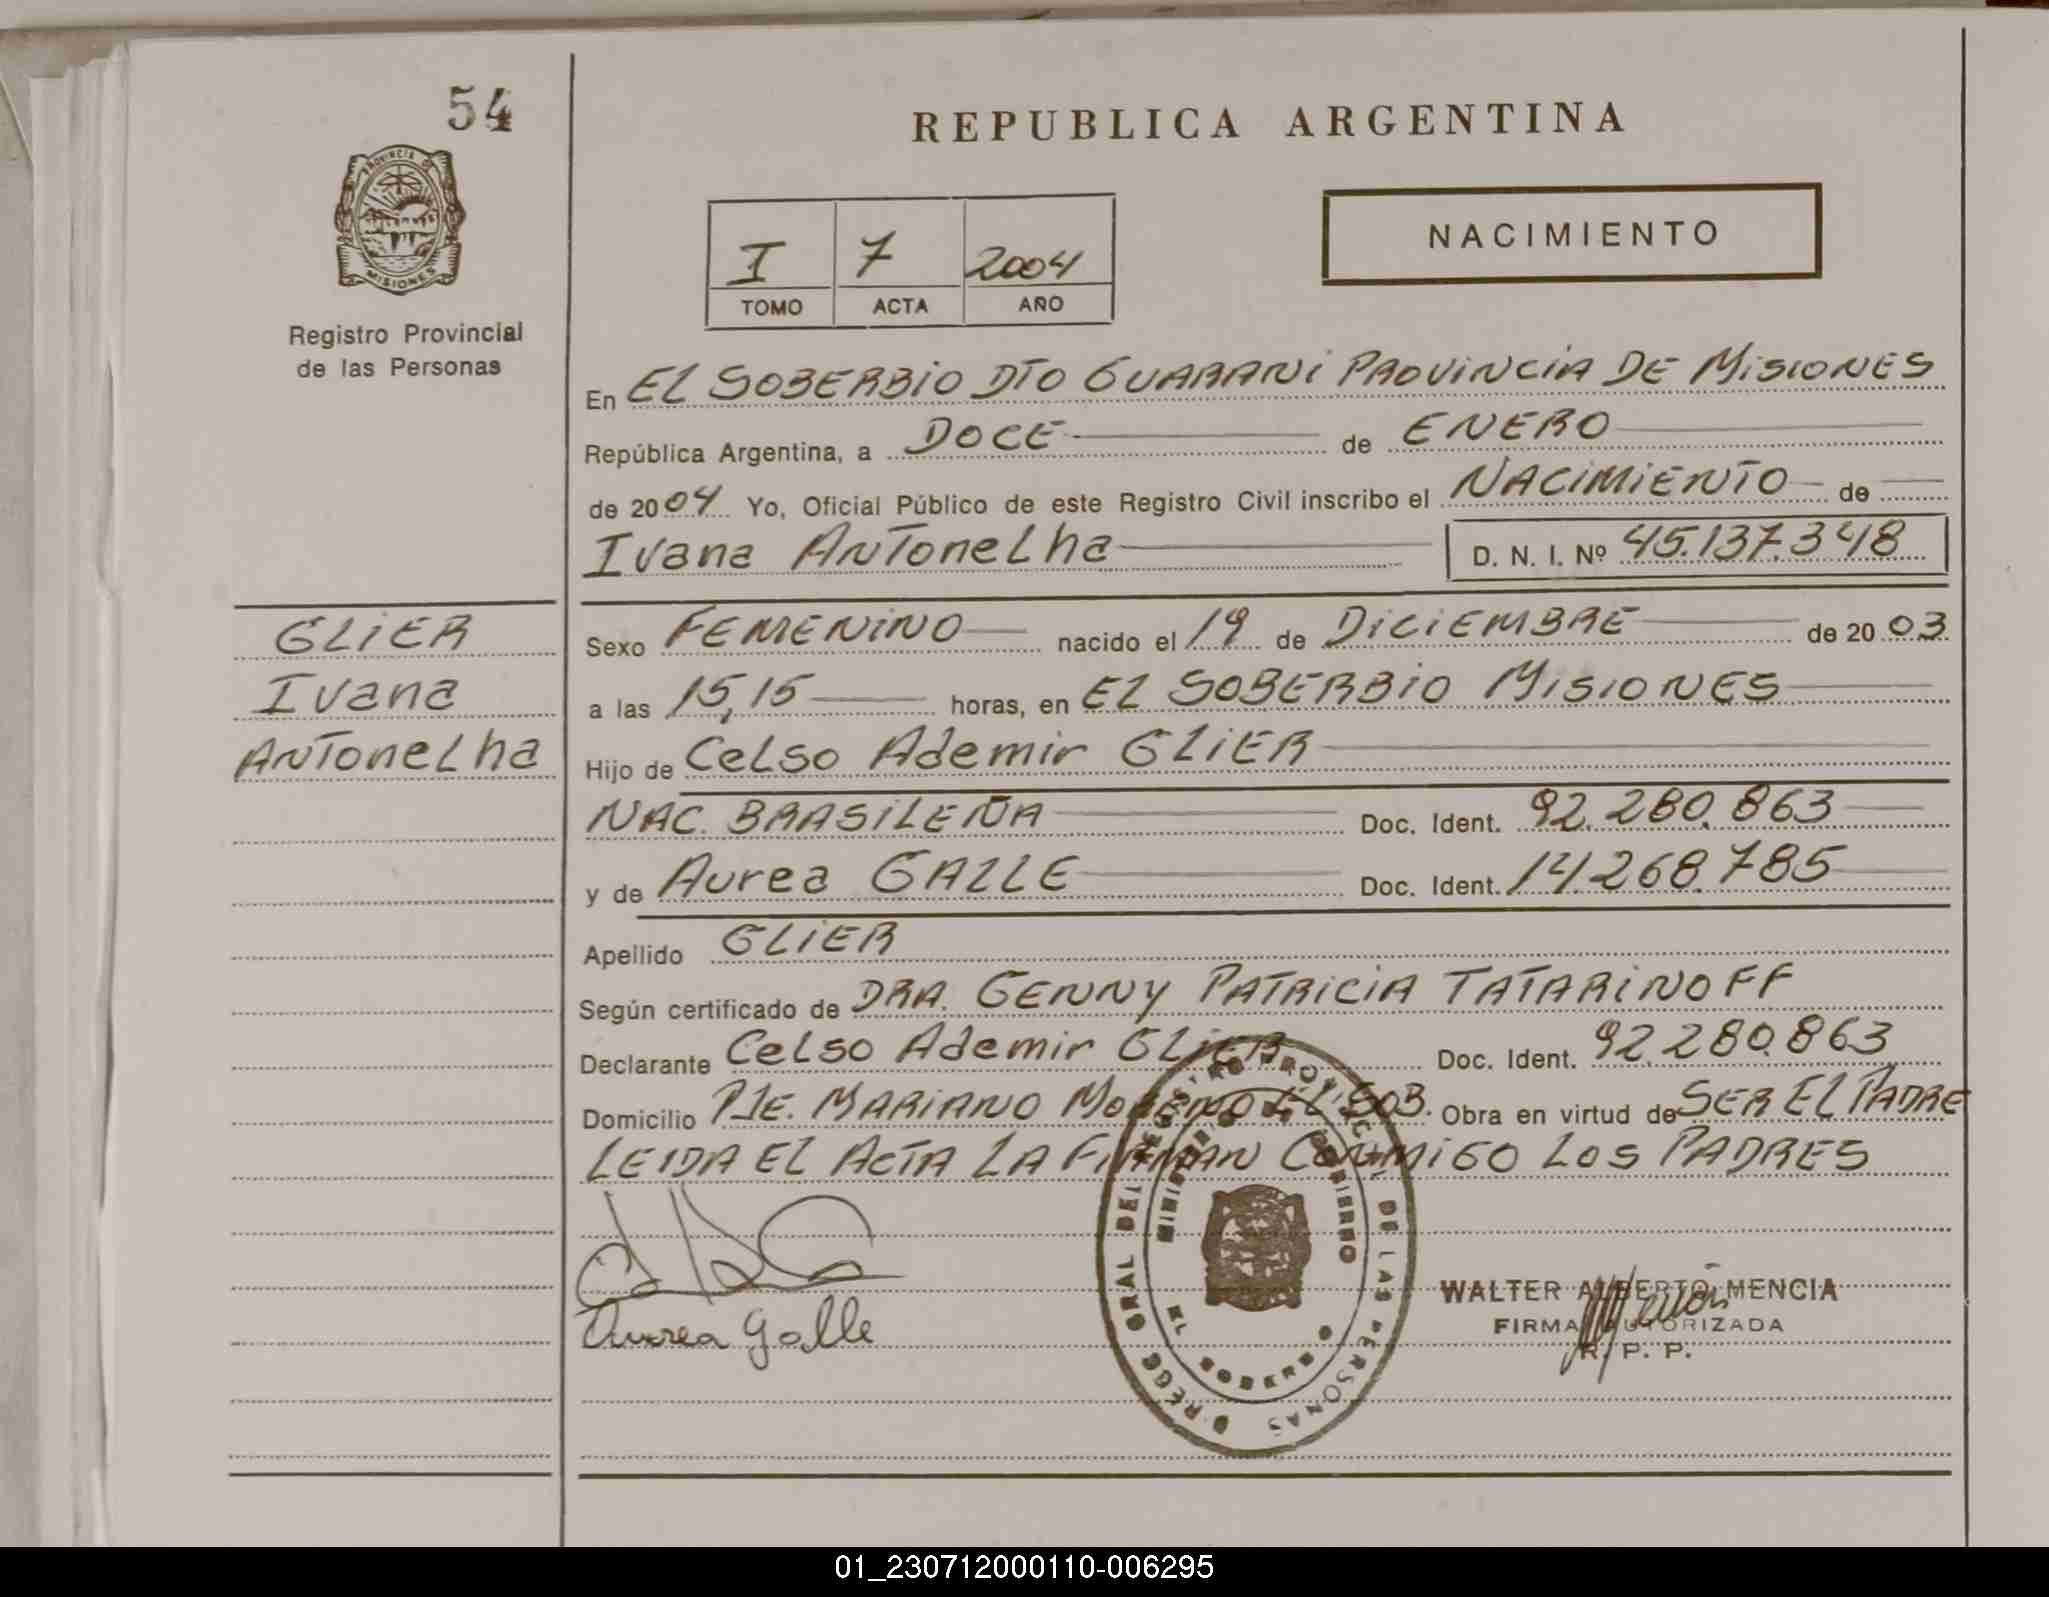 54
PROVINCIA DE
MISIONES
Registro Provincial
de las Personas
REPUBLICA ARGENTINA
I 7 2004
TOMO ACTA AÑO
NACIMIENTO
En EL SOBERBIO DTO GUARANI PROVINCIA DE MISIONES
República Argentina, a DOCE de ENERO
de 2004 Yo, Oficial Público de este Registro Civil inscribo el NACIMIENTO de
Ivana ANToneLha D. N. I. Nº 45.137.348
GLIER
Ivana
ANToneLha
Sexo FEMENINO nacido el 19 de DICIEMBRE de 2003
a las 15,15 horas, en EL SOBERBIO MISIONES
Hijo de CeLso Ademir GLIER
NAC. BRASILEÑA Doc. Ident. 92.280.863
y de Aurea GALLE Doc. Ident. 14.268.785
Apellido GLIER
Según certificado de DRA. GENNY PATRICIA TATARINOFF
Declarante CeLso Ademir GLIER Doc. Ident. 92.280.863
Domicilio PJE. MARIANO MORENO EL SOB. Obra en virtud de SER EL PADRE
LEIDA EL ACTA LA FIRMAN CONMIGO LOS PADRES
Aurea Galle
REGISTRO PROVINCIAL DE LAS PERSONAS
EL SOBERBIO
WALTER ALBERTO MENCIA
FIRMA AUTORIZADA
R. P. P.
01_230712000110-006295